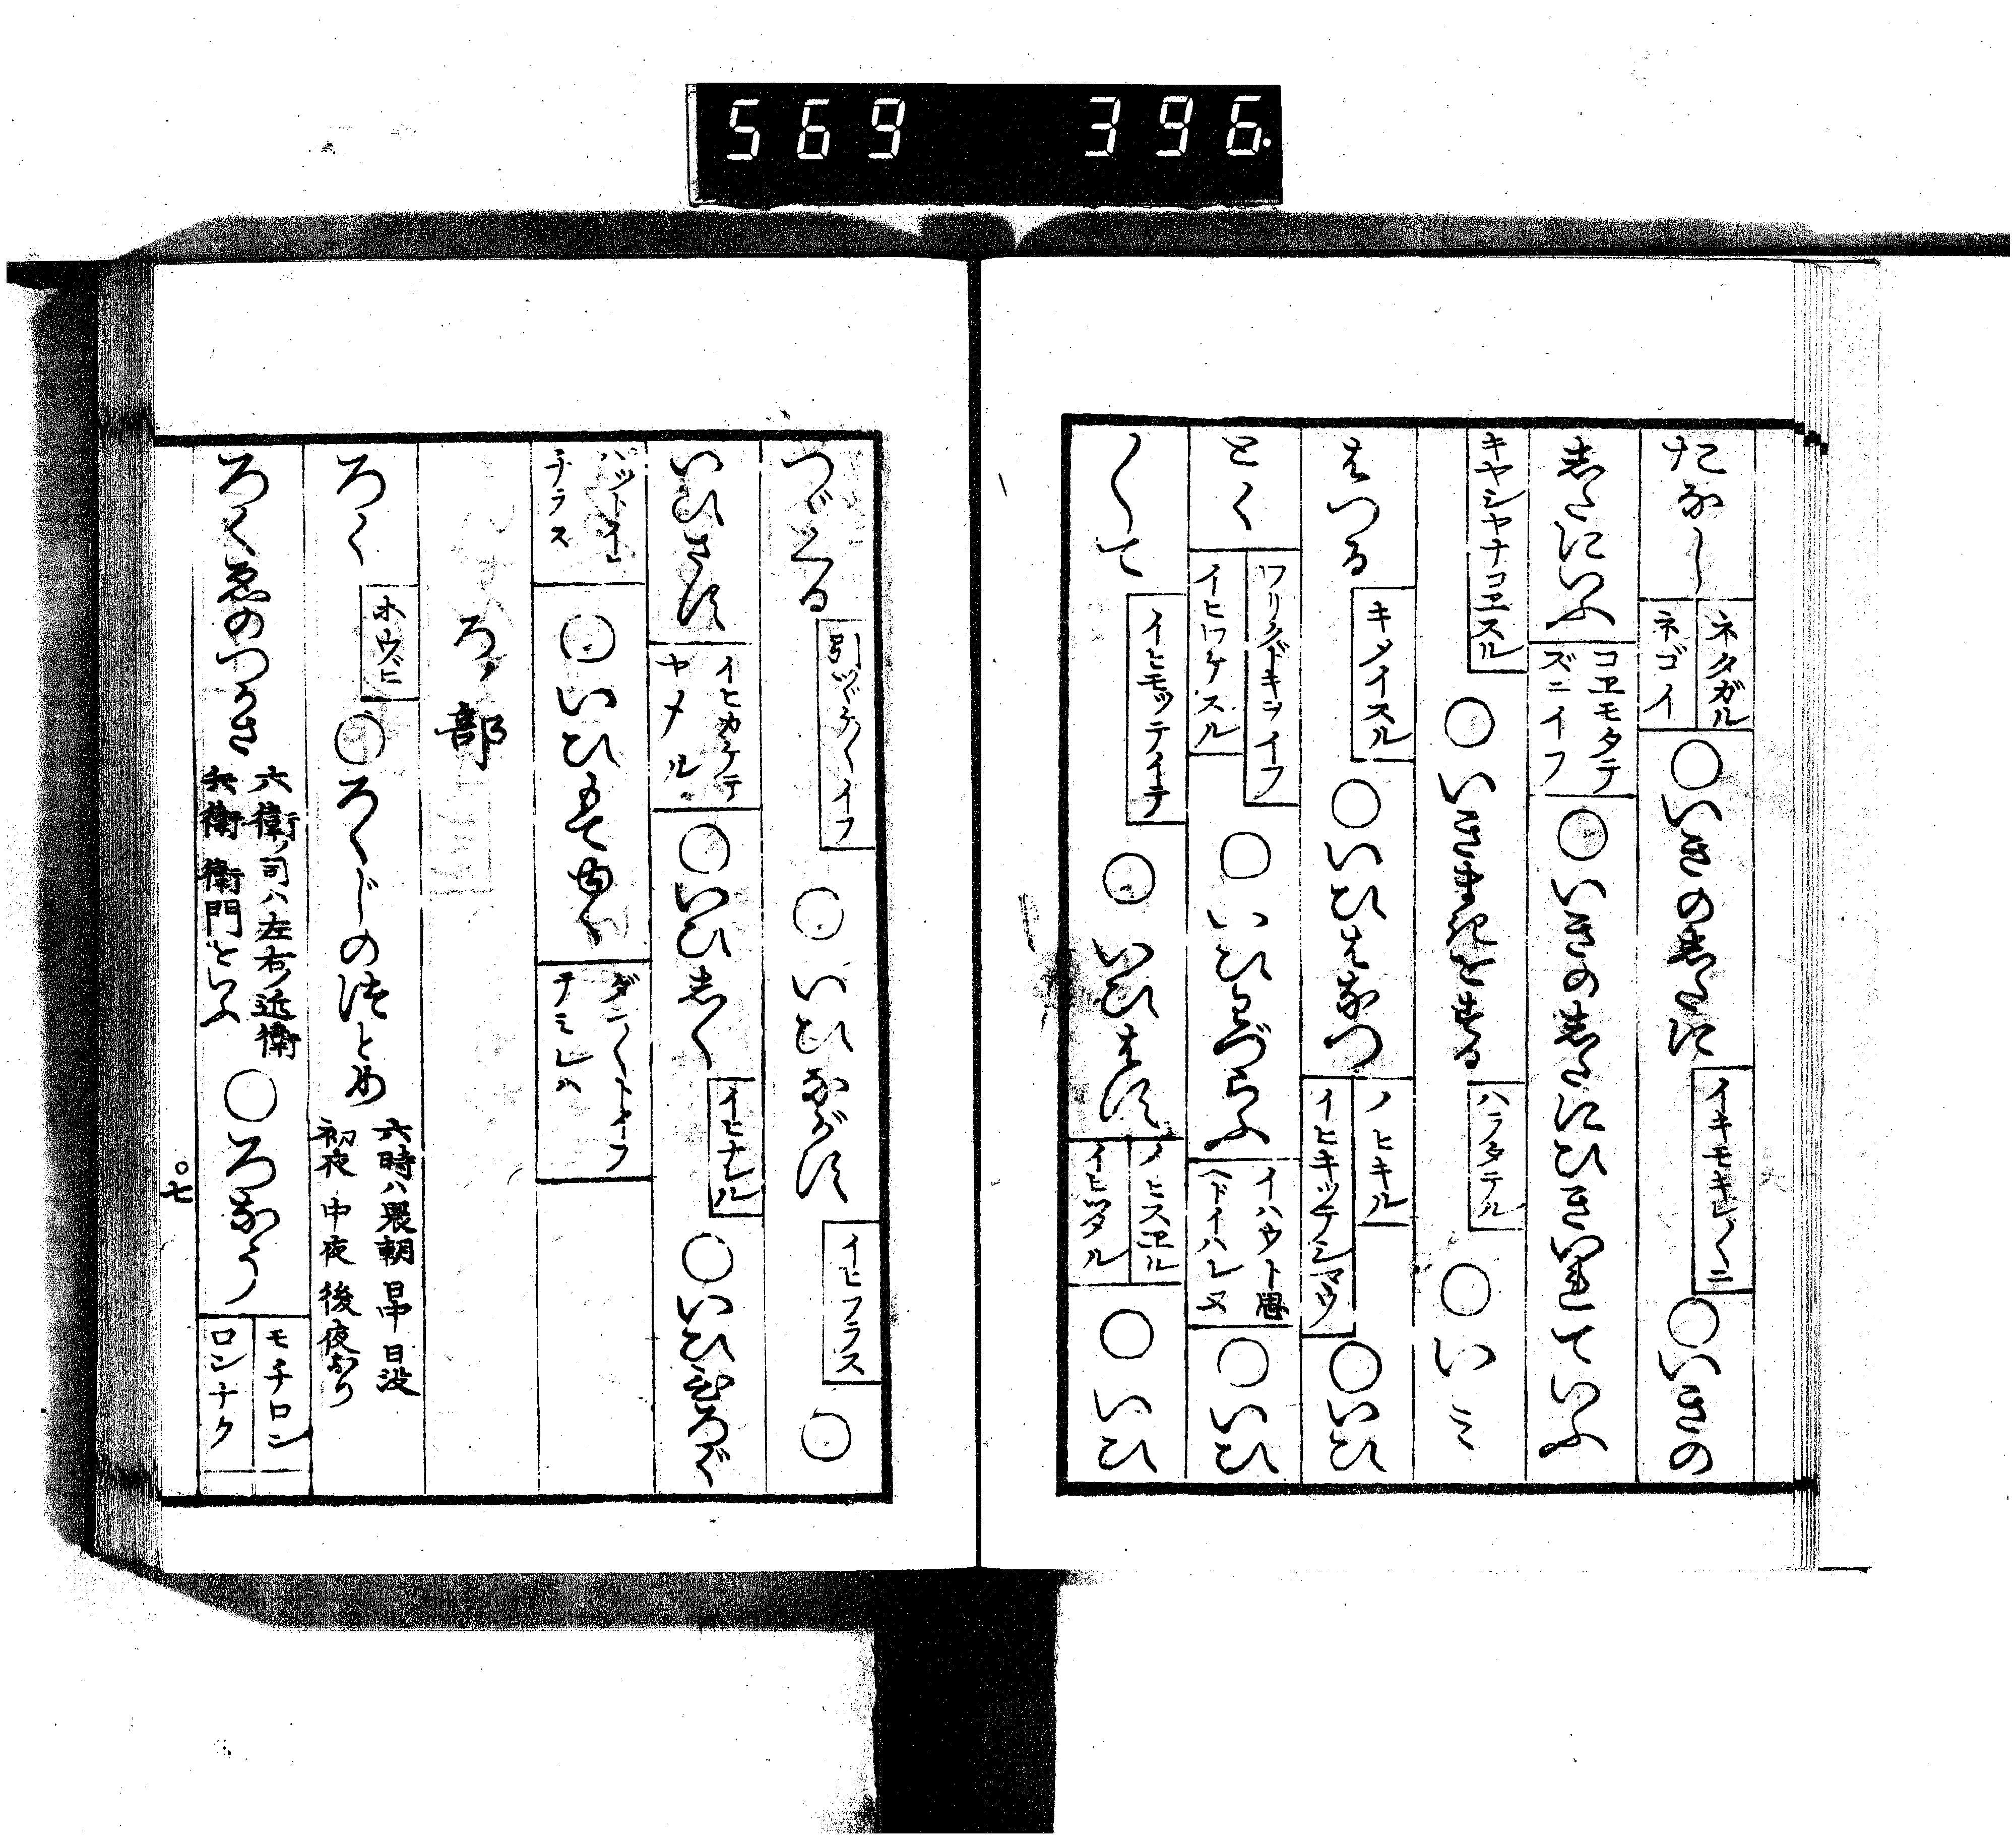 569 396.
たなし ネタガル ネゴイ ○いきの志たに イキモキレ〳〵ニ ○いきの
志たにいふ コヱモタテズニイフ ○いきの志たにひきいれていふ
キヤシヤナコヱスル ○いきまきとする ハラタテル ○いミ
はつる キメイスル ○いひはなつ ノヒキル イヒキツテシマウ ○いひ
とく ワリクドキヲイフ イヒワケスル ○いひわづらふ イハウト思ヘドイハレヌ ○いひ
〳〵て イヒモツテイテ ○いひはす ノヒスヱル イヒツタル ○いひ
つゞくる 引ツヾケ〳〵イフ ○いひながす イヒフラス ○
いひさす イヒカケテヤメル ○いひ志く イヒナル ○いひひろぐ
○いひもてゆく ダン〳〵トイフテミレハ
ろノ部
ろく ホウビ ○ろくじのつとめ 六時ハ晨朝 日中 日没 初夜 中夜 後夜なり
ろくゑのつかさ 六衛ノ司ハ左右ノ近衛 兵衛 衛門といふ ○ろなう モチロン ロンナク
○七